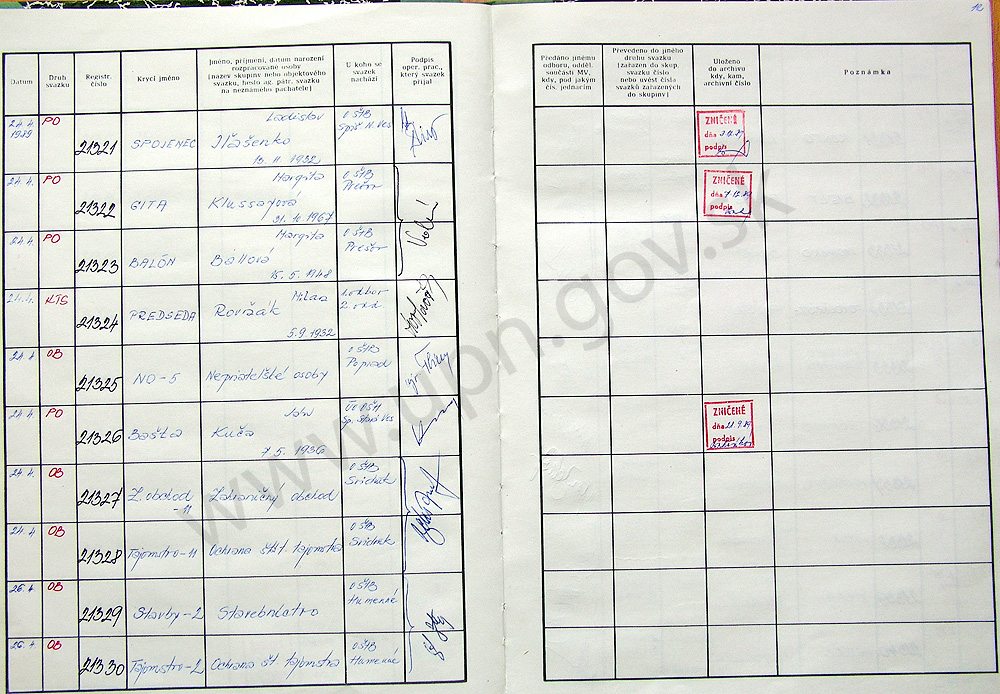 12
Datum
Druh svazku
Registr. číslo
Krycí jméno
Jméno, příjmení, datum narození
rozpracované osoby
(název skupiny nebo objektového
svazku, heslo ag. pátr. svazku
na neznámého pachatele)
U koho se
svazek
nachází
Podpis
oper. prac.,
který svazek
přijal
Předáno jinému
odboru, odděl.
součásti MV,
kdy, pod jakým
čís. jednacím
Převedeno do jiného
druhu svazku
(zařazen do skup.
svazku číslo
nebo uvést čísla
svazků zařazených
do skupiny)
Uloženo
do archivu
kdy, kam,
archivní číslo
Poznámka
24.4. 1989 PO 21321 SPOJENEC Ladislav
Iľašenko
13. 11. 1932
O ŠTB
N. Ves
ZNIČENÉ
dňa
podpis
24.4. PO 21322 GITA Margita
21. 10. 1967
O ŠTB
Prešov
ZNIČENÉ
dňa
podpis
24.4. PO 21323 BALÓN Margita
Ballová
15. 5. 1948
O ŠTB
Prešov
24.4. KTS 21324 PREDSEDA Milan
Rovňák
5. 9. 1932
1. odbor
2. odd.
24.4. OB 21325 NO-5 Nepriateľské osoby
O ŠTB
Poprad
24.4. PO 21326 Bašta Ján
Kuča
7. 5. 1936
Stará Ves
ZNIČENÉ
dňa
podpis
24.4. OB 21327 Z. obchod
-11
Zahraničný obchod
O ŠTB
Svidník
24.4. OB 21328 Tajomstvo-11 Ochrana št. tajomstva
O ŠTB
Svidník
26.4. OB 21329 Stavby-2 Stavebníctvo
O ŠTB
Humenné
26.4. OB 21330 Tajomstvo-2 Ochrana št. tajomstva
O ŠTB
Humenné
www.upn.gov.sk